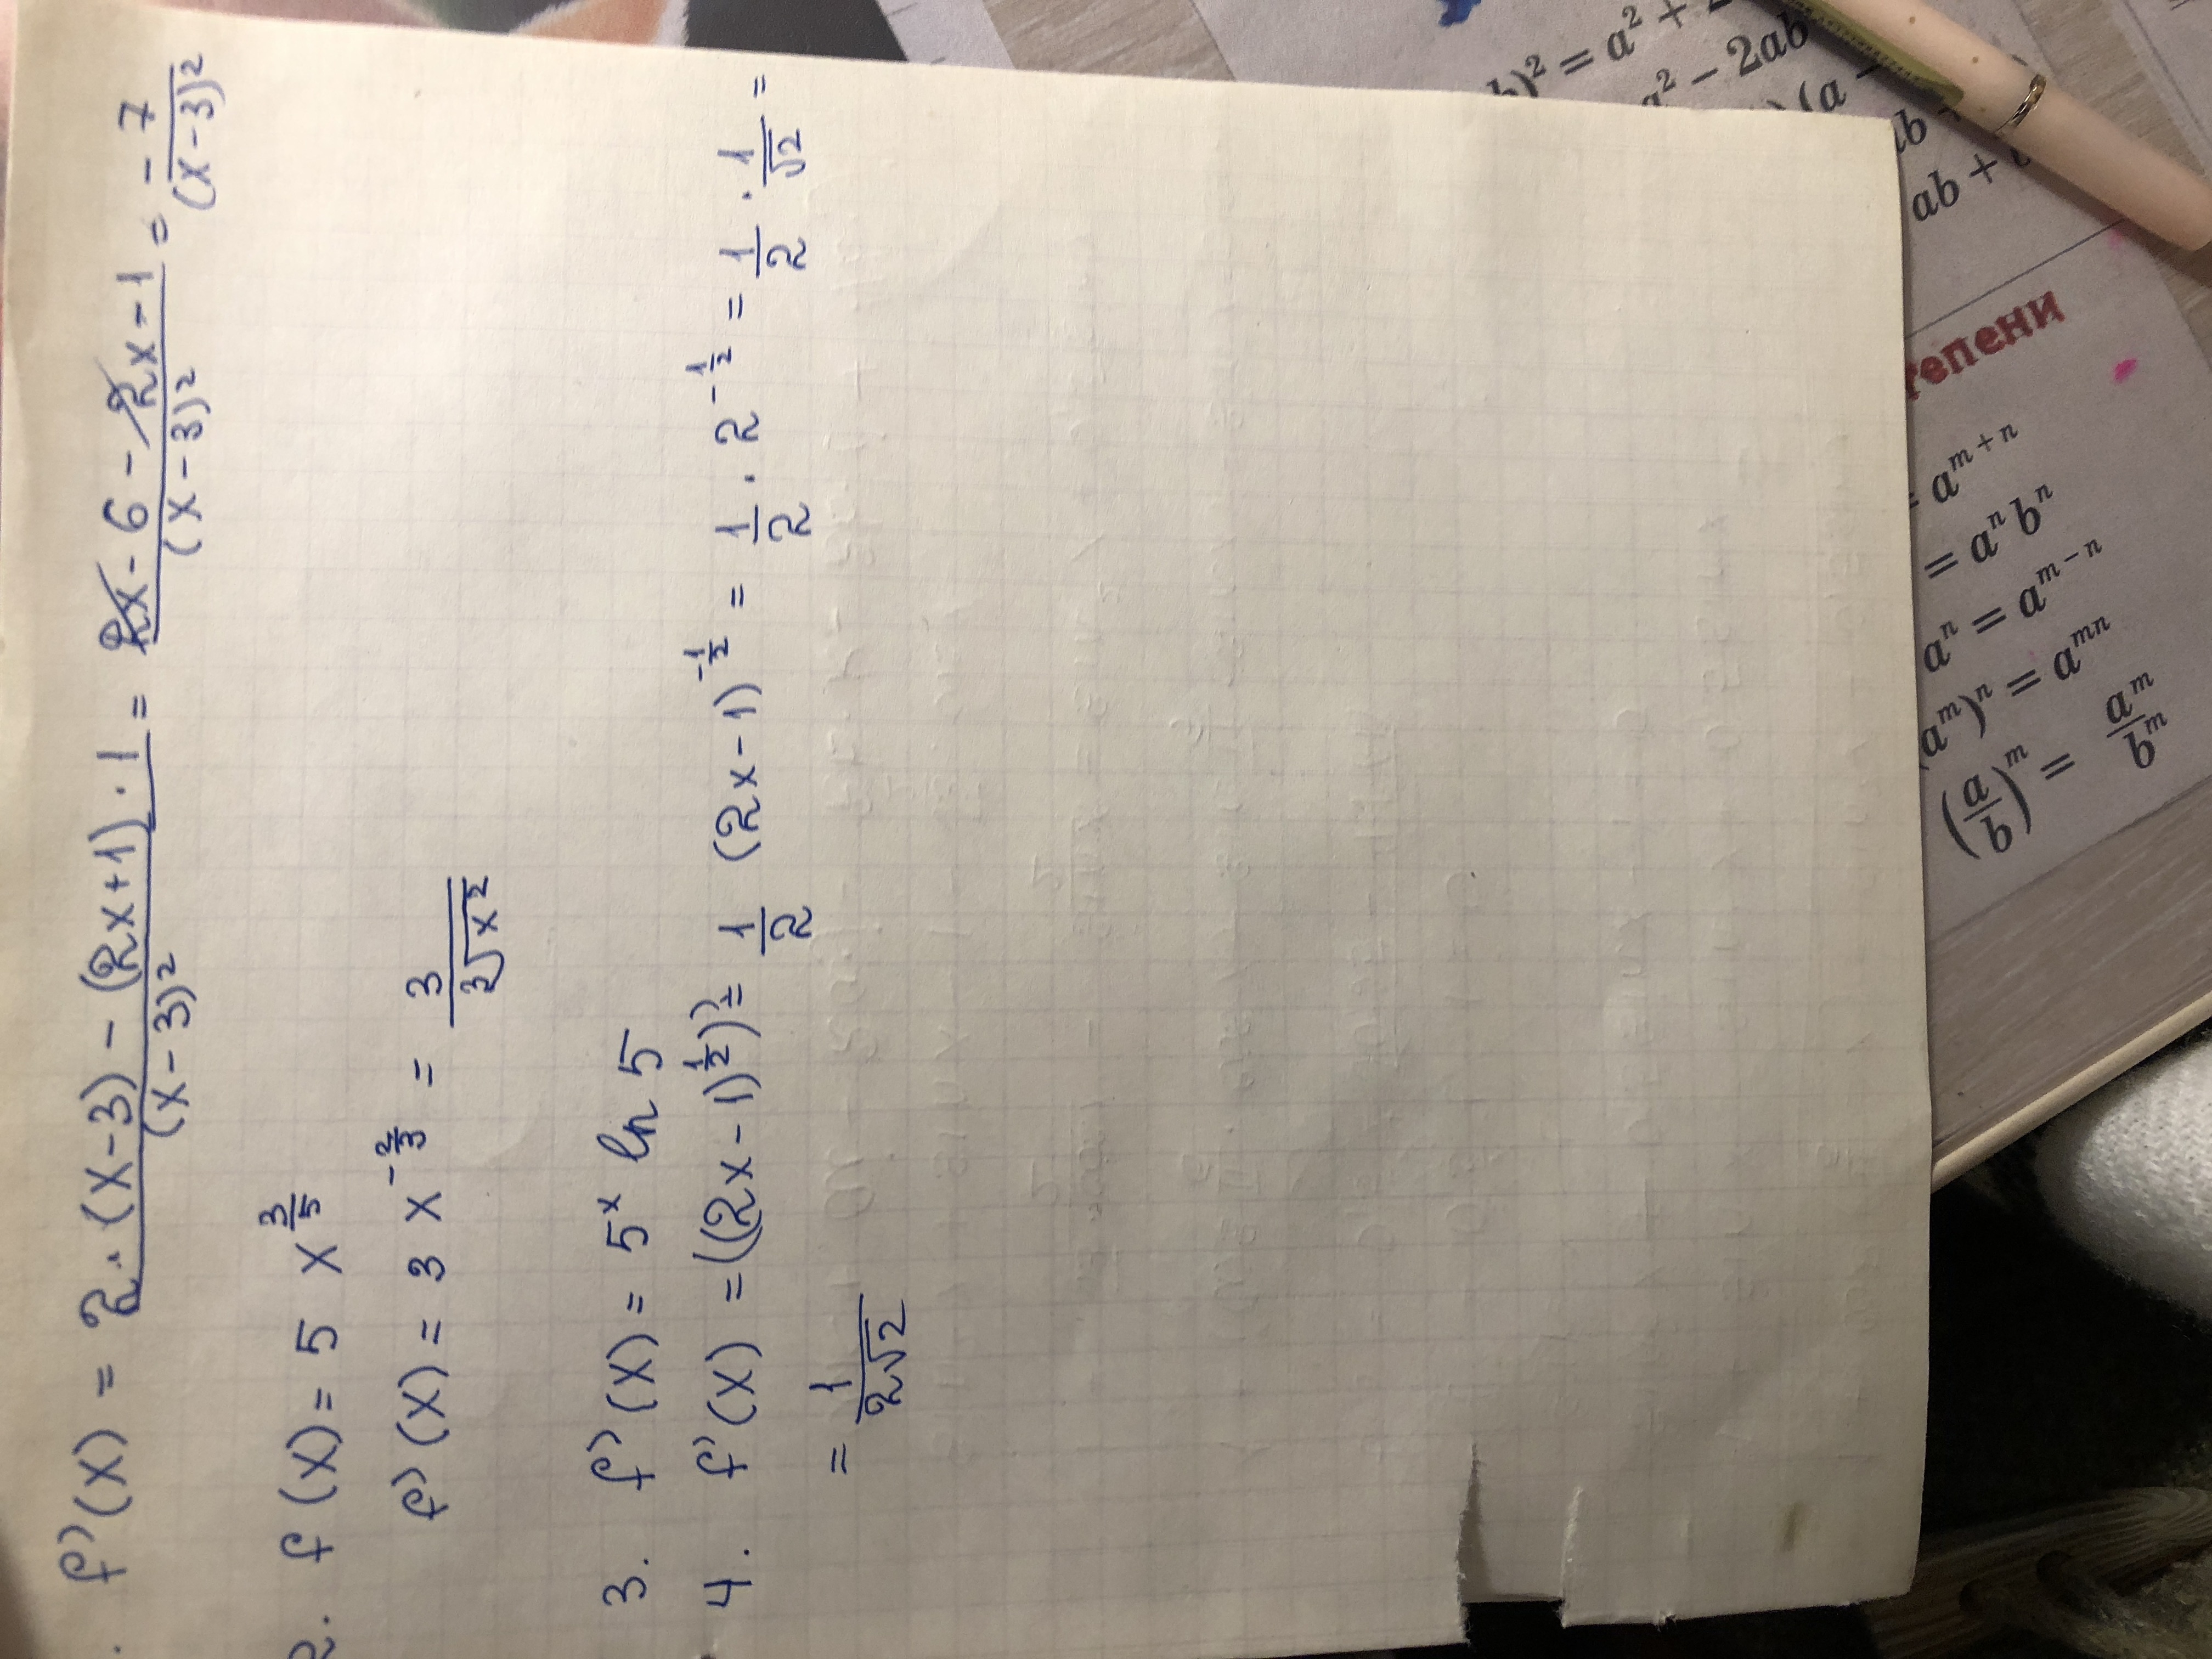 . f'(x) = \frac{2 \cdot (x-3) - (2x+1) \cdot 1}{(x-3)^2} = \frac{2x - 6 - 2x - 1}{(x-3)^2} = \frac{-7}{(x-3)^2}
2. f(x) = 5 x^{\frac{3}{5}}
f'(x) = 3 x^{-\frac{2}{3}} = \frac{3}{\sqrt[3]{x^2}}
3. f'(x) = 5^x ln 5
4. f'(x) = ((2x-1)^{\frac{1}{2}})' = \frac{1}{2} (2x-1)^{-\frac{1}{2}} = \frac{1}{2} \cdot 2^{-\frac{1}{2}} = \frac{1}{2} \cdot \frac{1}{\sqrt{2}} =
= \frac{1}{2\sqrt{2}}
b)^2 = a^2 +
a^2 - 2ab
) (a -
ab +
ab +
тепени
= a^{m+n}
= a^n b^n
a^n = a^{m-n}
(a^m)^n = a^{mn}
(\frac{a}{b})^m = \frac{a^m}{b^m}